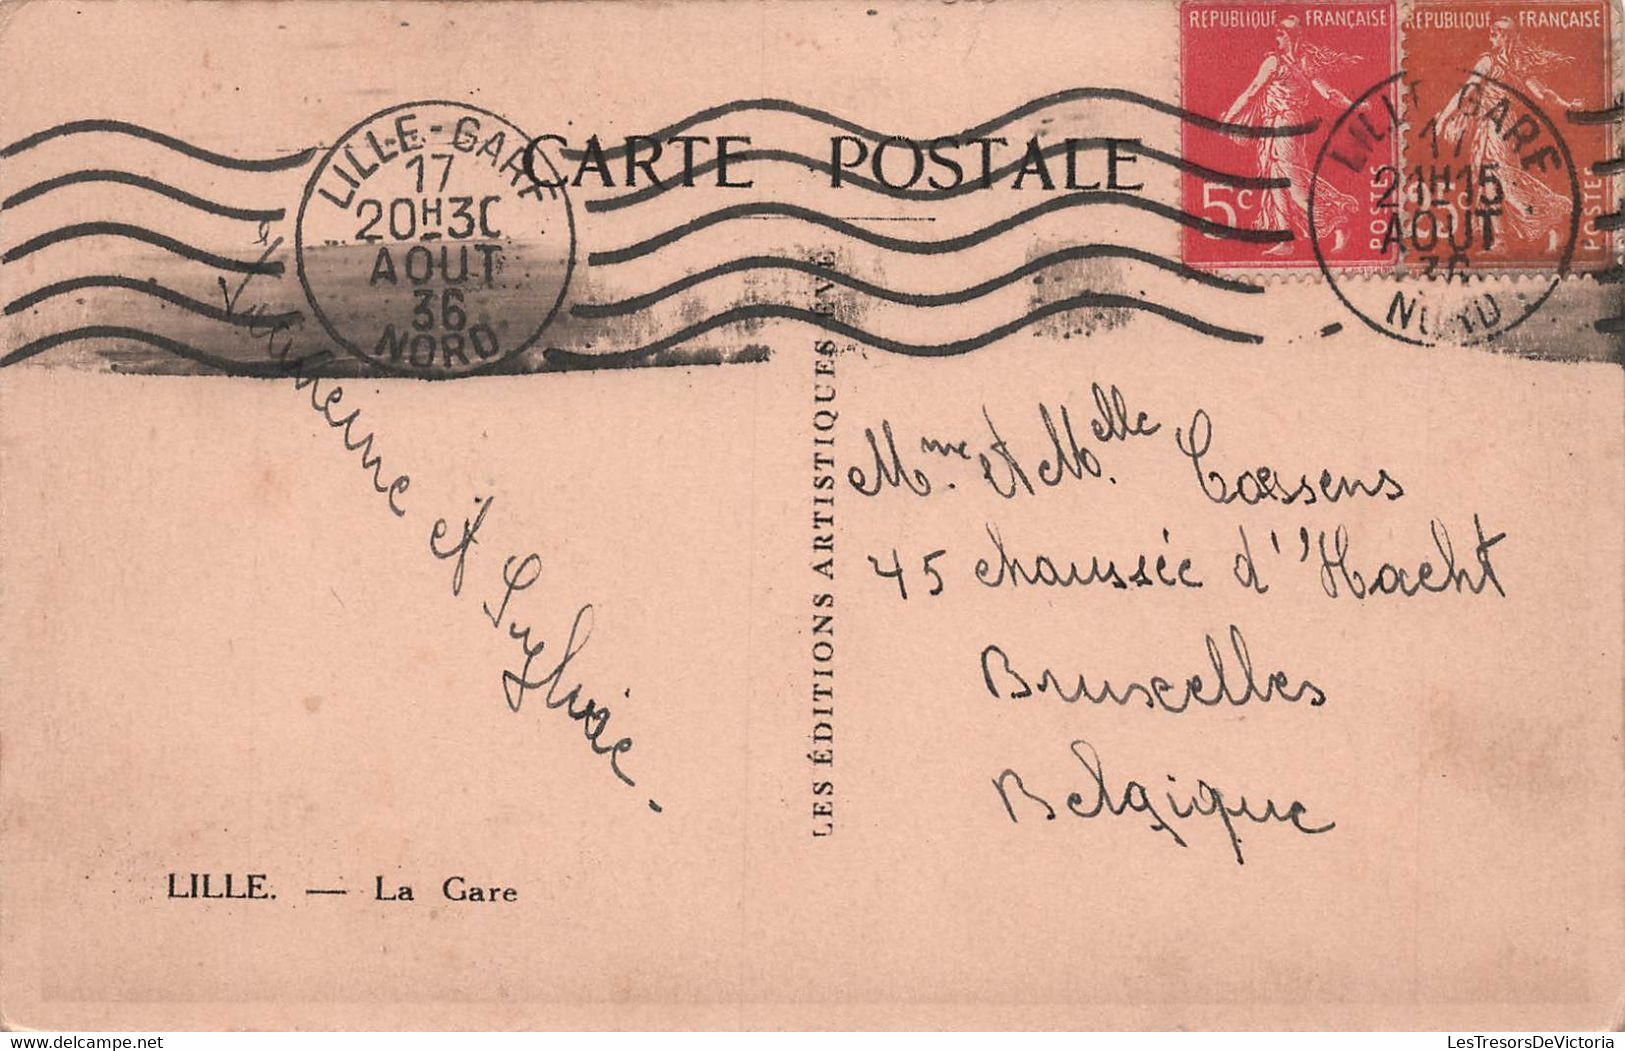 CARTE POSTALE
RÉPUBLIQUE FRANÇAISE
5c
POSTES
RÉPUBLIQUE FRANÇAISE
POSTES
LILLE-GARE
17
20H30
AOUT
36
NORD
LILLE GARE
17
21H15
AOUT
36
NORD
et
Mme. et Melle Cossens
45 chaussée d''Hacht
Bruxelles
Belgique
LES ÉDITIONS ARTISTIQUES EVE
LILLE. — La Gare
LesTresorsDeVictoria